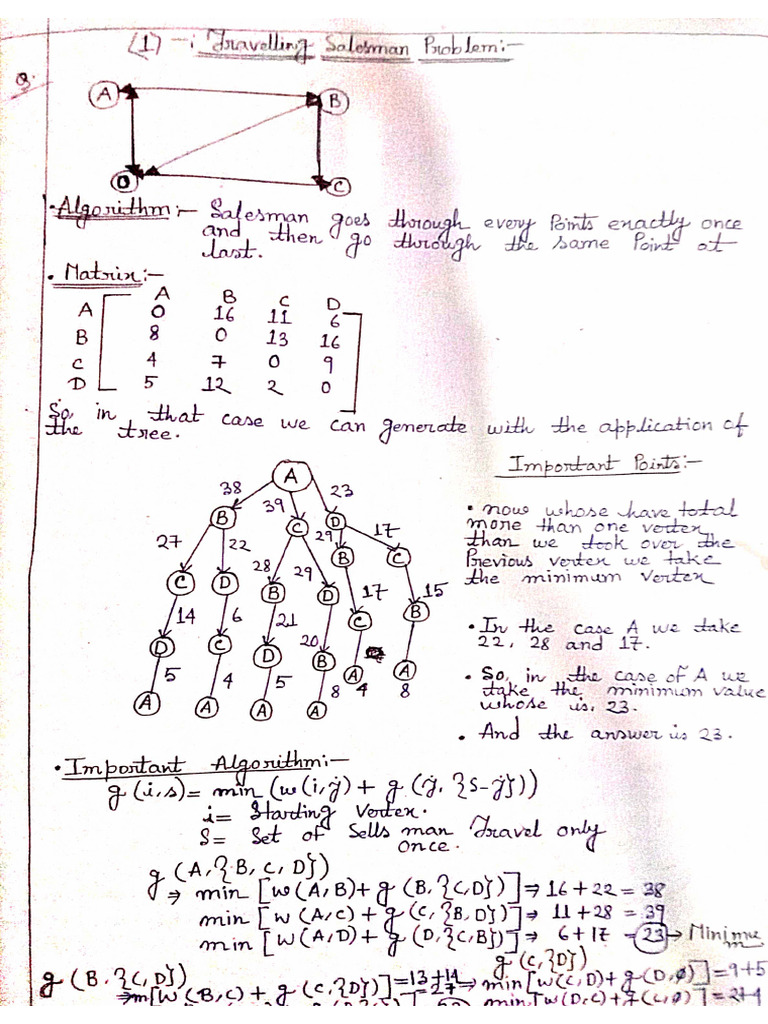 (1) -: Travelling Salesman Problem:-
Q.
A B
D C
• Algorithm:- Salesman goes through every Points enactly once
and then go through the same Point at
last.
• Matrix:-
A B C D
A 0 16 11 6
B 8 0 13 16
C 4 7 0 9
D 5 12 2 0
So, in that case we can generate with the application of
the tree.
A
38 39 23
B C D
27 22 28 29 29 17
C D B D B C
14 6 21 20 17 15
D C D B C B
5 4 5 8 4 8
A A A A A A
Important Points:-
• now whose have total
more than one vertex
than we took over the
Previous vertex we take
the minimum vertex
• In the case A we take
22, 28 and 17.
• So, in the case of A we
take the minimum value
whose is. 23.
• And the answer is 23.
• Important Algorithm:-
g (i,s) = min (w(i,j) + g (j, {S-j}))
i = Starting Vertex.
S = Set of Sells man Travel only
once.
g (A,{B, C, D})
⇒ min [w(A,B)+ g (B,{C,D})] ⇒ 16+22 = 38
min [w (A,C) + g (C,{B,D})] ⇒ 11+28 = 39
min [w(A,D)+ g (D,{C,B})] ⇒ 6+17 = 23 → Minimum
g (B,{C,D}) g (C,{D})
⇒m[w(B,C) + g (C,{D})] =13+14 =27 ⇒ min[w(C,D)+g(D,ø)]=9+5
min[w(D,C)+g(C,ø)]=2+4